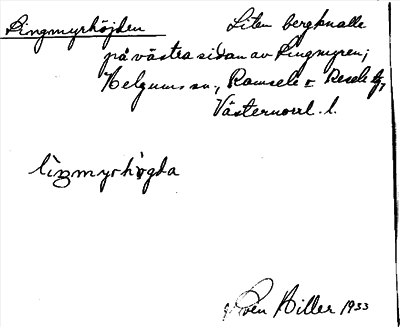 Lingmyrhöjden Liten bergknalle
på västra sidan av Lingmyren;
Helgums sn, Ramsele o Resele tg,
Västernorrl. l.
lingmyrhögda
Sven Hiller 1933